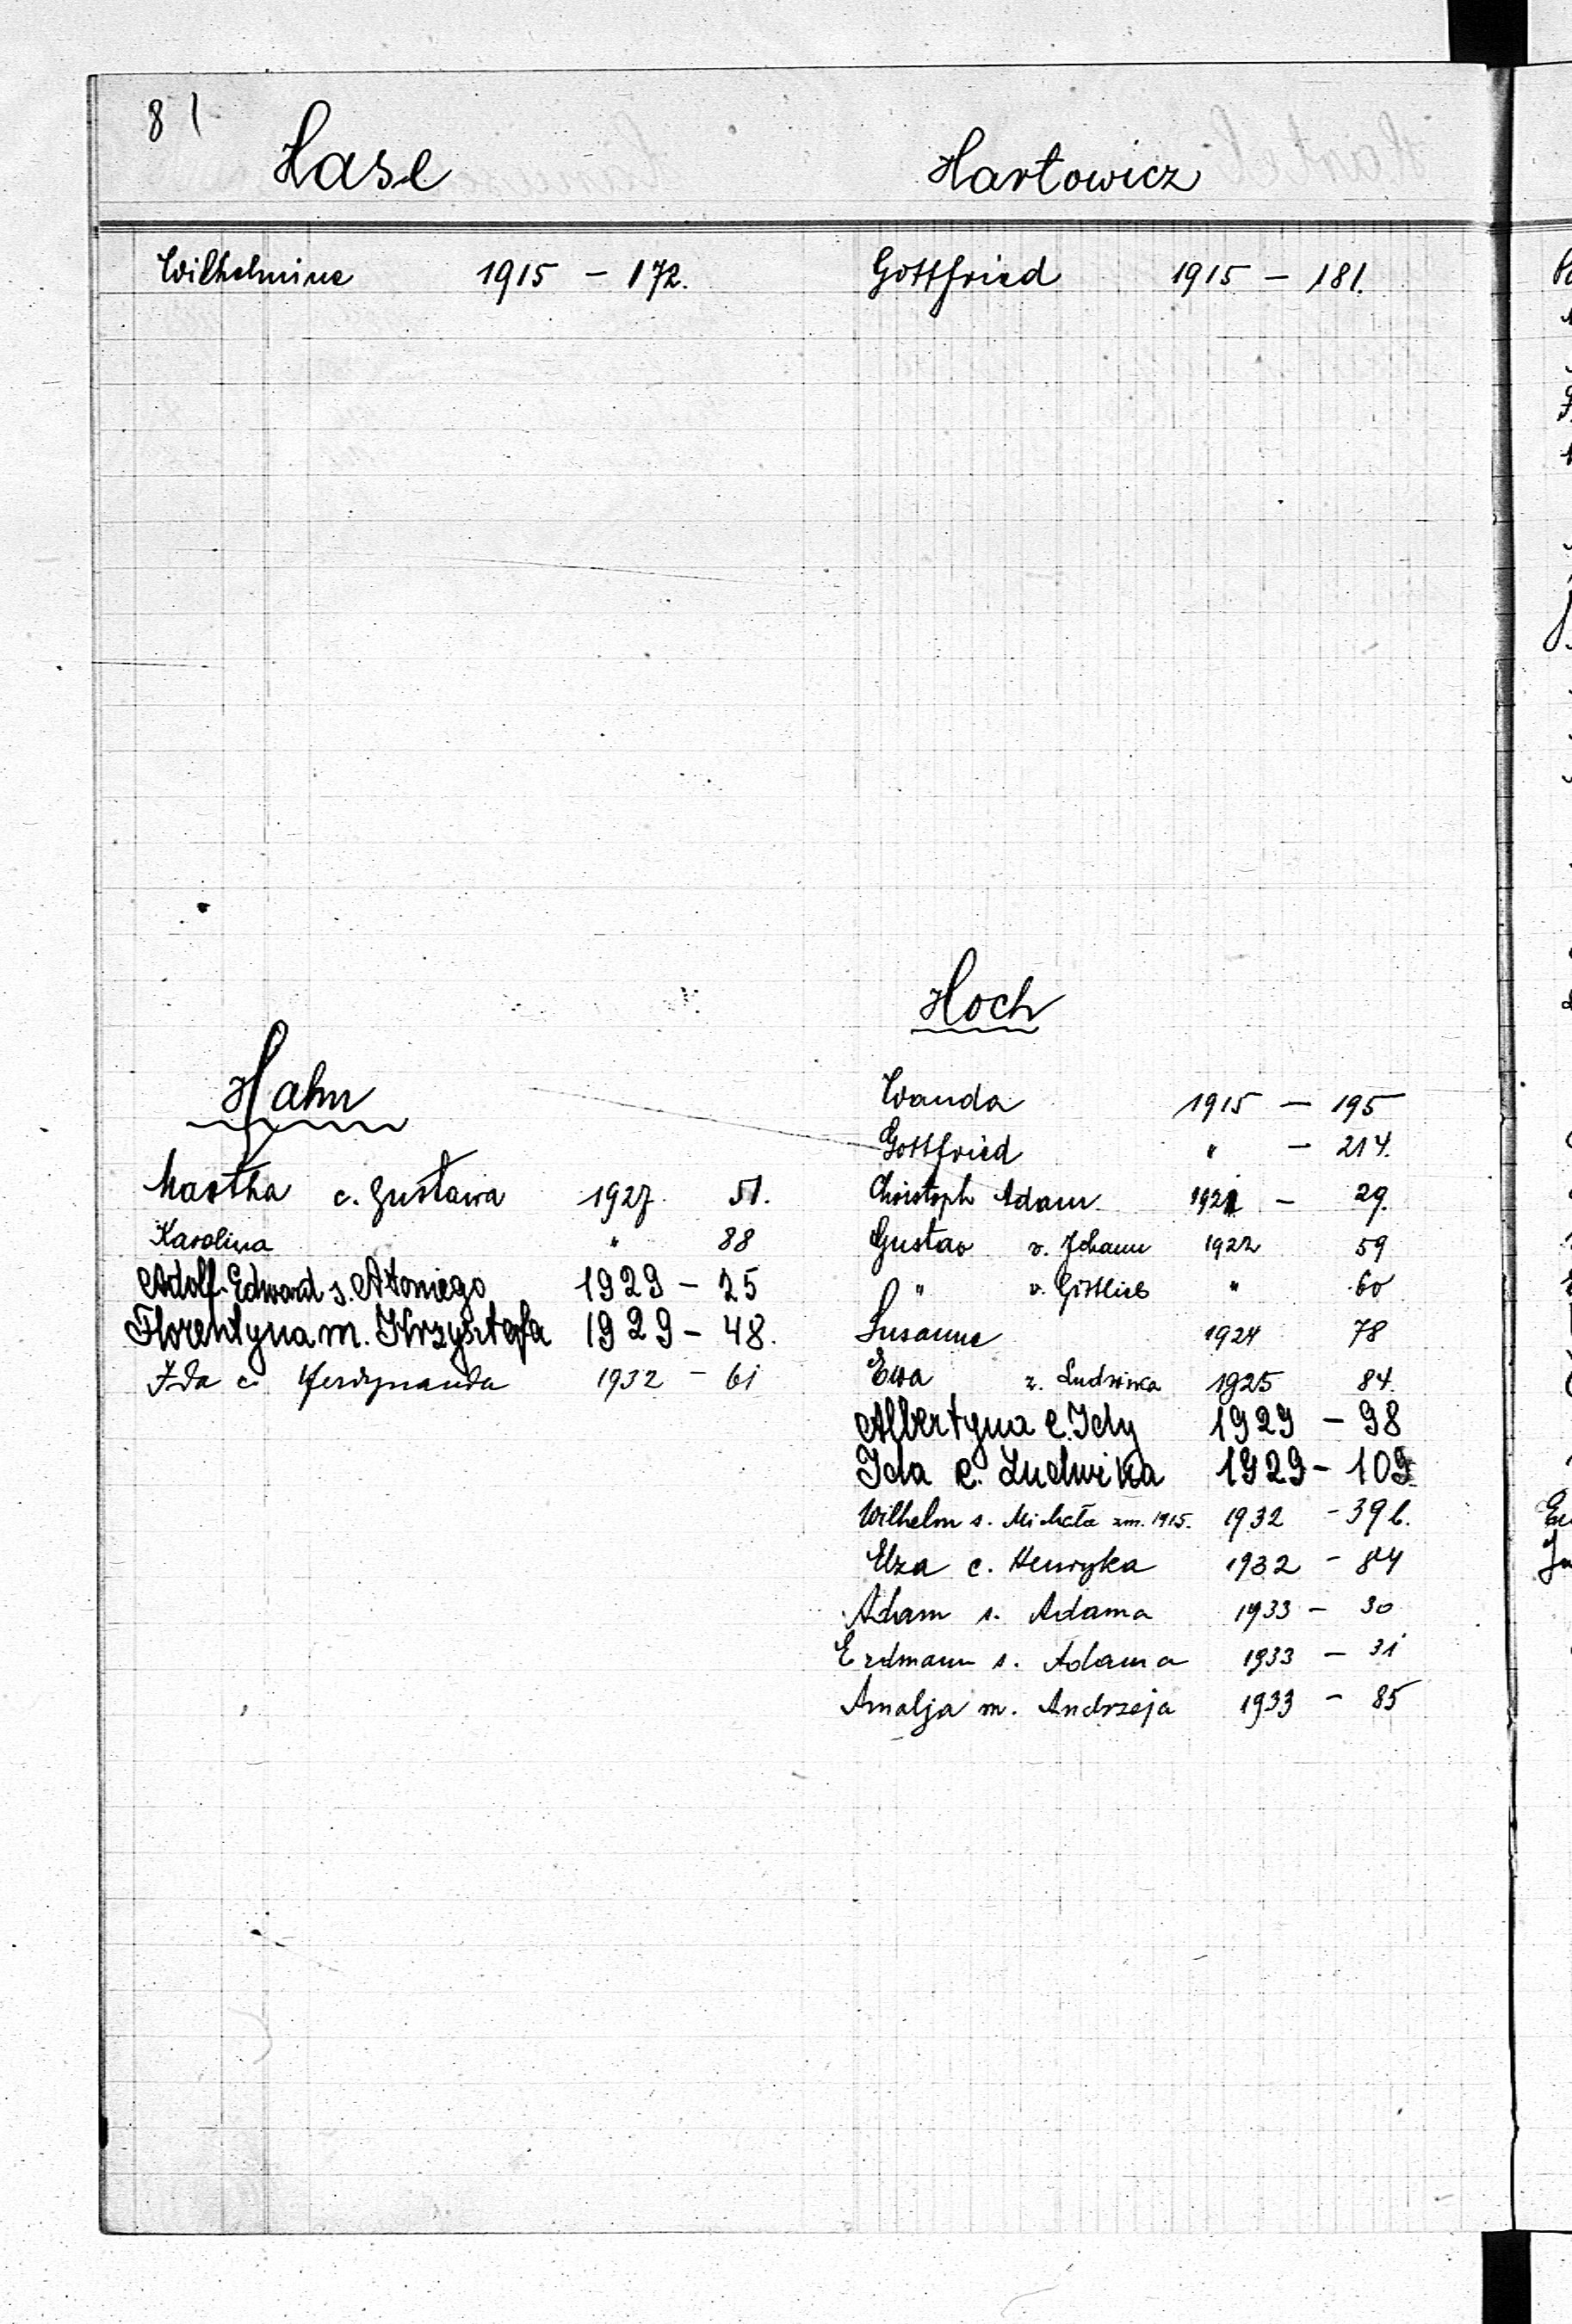 81
Hase
Wilhelmine 1915 – 172.
Hahn
Martha c. Gustawa 1927 51.
Karolina " 88
Adolf-Edward s. Antoniego 1929 – 25
Florentyna m. Krzysztofa 1929 – 48.
Ida c. Ferdynanda 1932 – 61
Hartowicz
Gottfried 1915 – 181.
Hoch
Wanda 1915 – 195
Gottfried " – 214.
Christoph Adam 1921 – 29.
Gustav v. Johann 1922 59
" v. Gottlieb " 60
Susanne 1924 78
Ewa z. Ludwika 1925 84.
Albertyna c. Idy 1929 – 98
Ida c. Ludwika 1929 – 109
Wilhelm s. Michała zm. 1915. 1932 – 39b.
Elza c. Henryka 1932 – 84
Adam s. Adama 1933 – 30
Erdmann s. Adama 1933 – 31
Amalja m. Andrzeja 1933 – 85